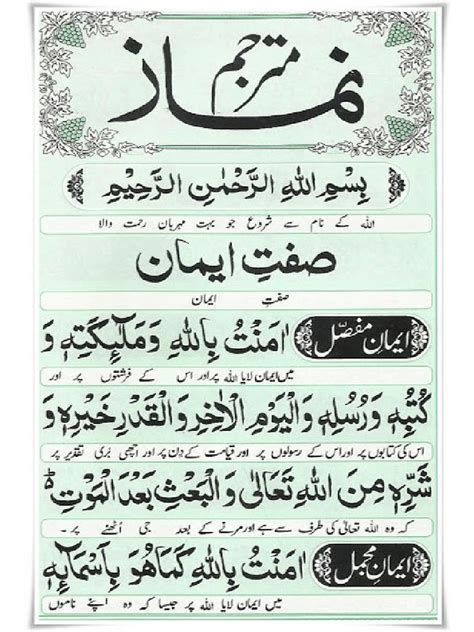 نماز مترجم
بِسْمِ اللهِ الرَّحْمٰنِ الرَّحِيْمِ
اللہ کے نام سے شروع جو بہت مہربان رحمت والا
صفتِ ایمان
صفتِ ایمان
ایمان مفصّل اٰمَنْتُ بِاللهِ وَمَلٰٓئِكَتِهٖ وَ
میں ایمان لایا اللہ پر اور اس کے فرشتوں پر اور
كُتُبِهٖ وَرُسُلِهٖ وَالْيَوْمِ الْاٰخِرِ وَالْقَدْرِ خَيْرِهٖ وَ
اس کی کتابوں پر اور اس کے رسولوں پر اور قیامت کے دن پر اور اچھی بری تقدیر پر
شَرِّهٖ مِنَ اللهِ تَعَالٰى وَالْبَعْثِ بَعْدَ الْمَوْتِ ؕ
کہ وہ اللہ تعالیٰ کی طرف سے ہے اور مرنے کے بعد جی اُٹھنے پر ۔
ایمانِ مجمل اٰمَنْتُ بِاللهِ كَمَا هُوَ بِاَسْمَآئِهٖ
میں ایمان لایا اللہ پر جیسا کہ وہ اپنے ناموں